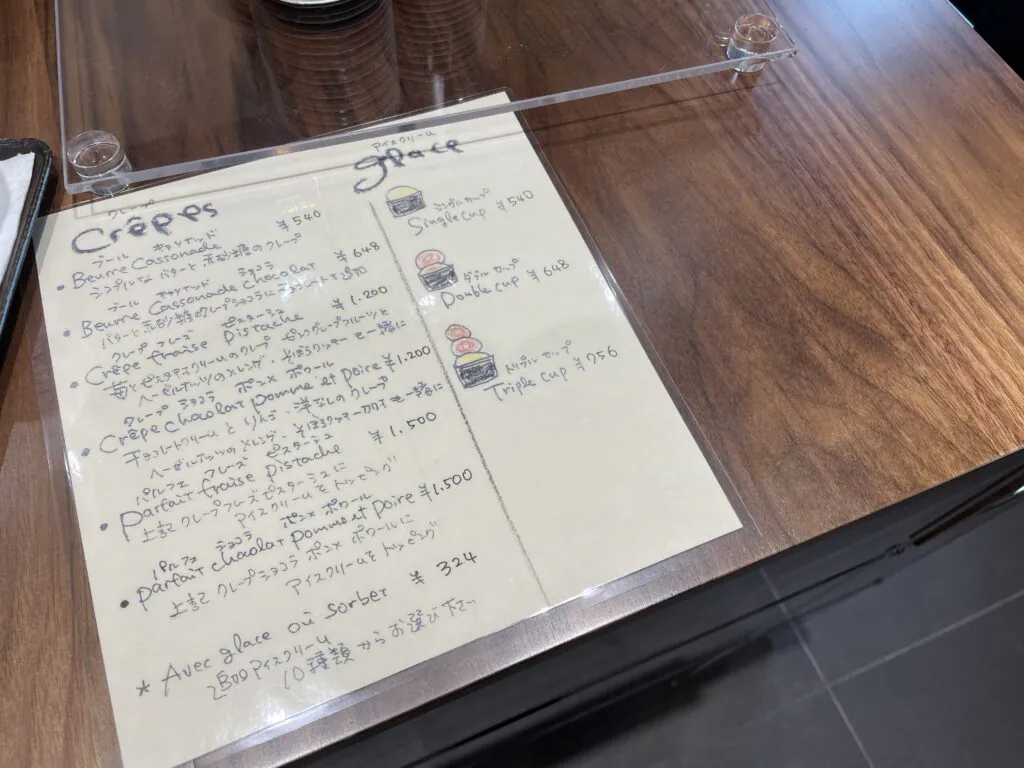 クレープ
Crêpes
ブール キャソナッド
Beurre Cassonade ¥540
シンプルな バターと赤砂糖のクレープ
ブール キャソナッド ショコラ
Beurre Cassonade Chocolat ¥648
バターと赤砂糖のクレープ ショコラに チョコレートを追加
クレープ フレーズ ピスターシュ
Crêpe fraise Pistache ¥1.200
苺とピスタチオクリームのクレープ ピンクグレープフルーツと
ヘーゼルナッツのメレンゲ・そぼろクッキーと一緒に
クレープ ショコラ ポンメ ポワール
Crêpe chocolat pomme et poire ¥1.200
チョコレートクリームとりんご、洋なしのクレープ
ヘーゼルナッツのメレンゲ・そぼろクッキー と一緒に
パルフェ フレーズ ピスターシュ
parfait fraise pistache ¥1.500
上記 クレープフレーズピスターシュに
アイスクリームをトッピング
パルフェ ショコラ ポンメ ポワール
parfait chocolat pomme et poire ¥1.500
上記 クレープショコラ ポンメ ポワールに
アイスクリームをトッピング
★ Avec glace où sorbet ¥324
アイスクリーム
10種類からお選び下さい
アイスクリーム
glace
シングルカップ
Single cup ¥540
ダブルカップ
Double cup ¥648
トリプルカップ
Triple cup ¥756